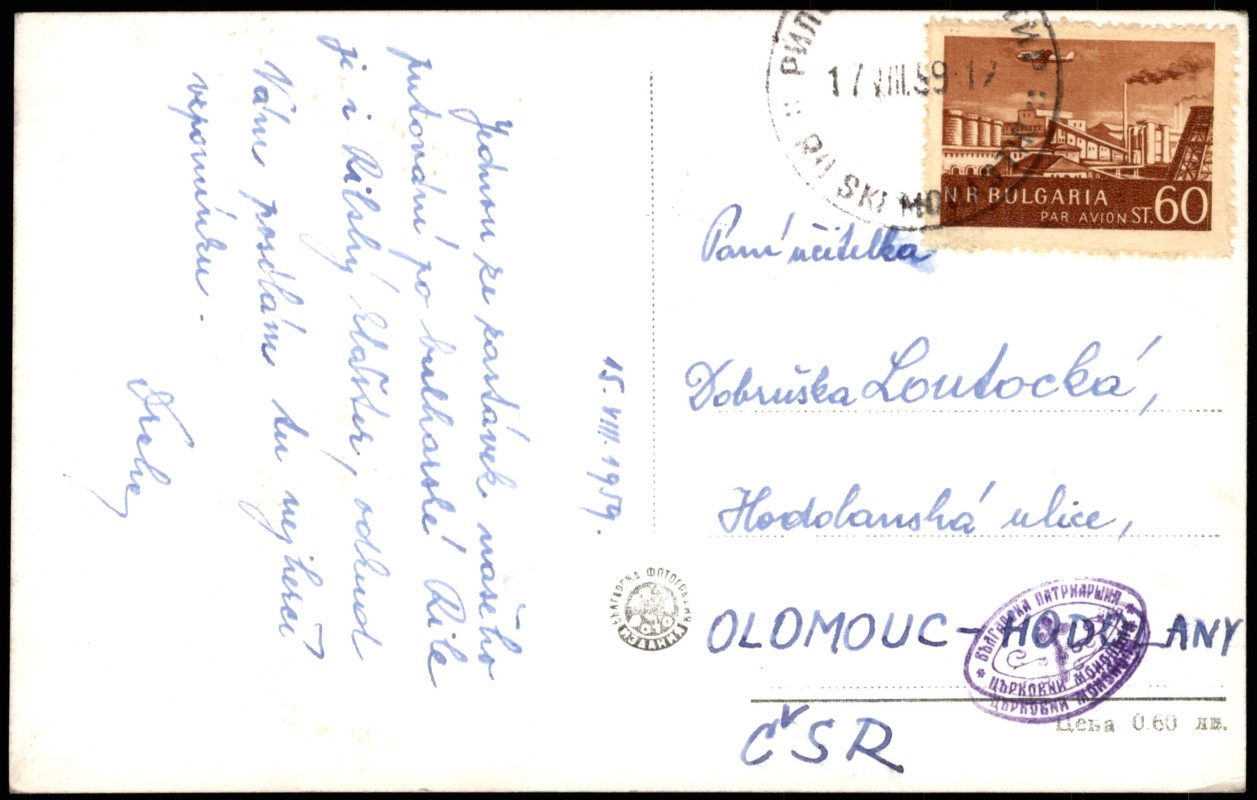 Jednou ze zastávek našeho
putování po bulharské Rile
je i Rilský klášter, odkud
Vám posílám tu nejhezčí
vzpomínku.
15. VIII. 1959.
БЪЛГАРСКА ФОТОГРАФИЯ
ИЗДАНИЕ
РИЛ
ИР
17 VIII.59-17
RILSKI MON
N R BULGARIA
PAR AVION ST. 60
Paní učitelka
Dobruška Loutocká,
Hodolanská ulice,
OLOMOUC-HODOLANY
ČSR
БЪЛГАРСКА ПАТРИАРШИЯ
ЦЪРКОВНИ МОНОПОЛИ
ЦЪРКОВНИ МОНОПОЛ
Цена 0.60 лв.